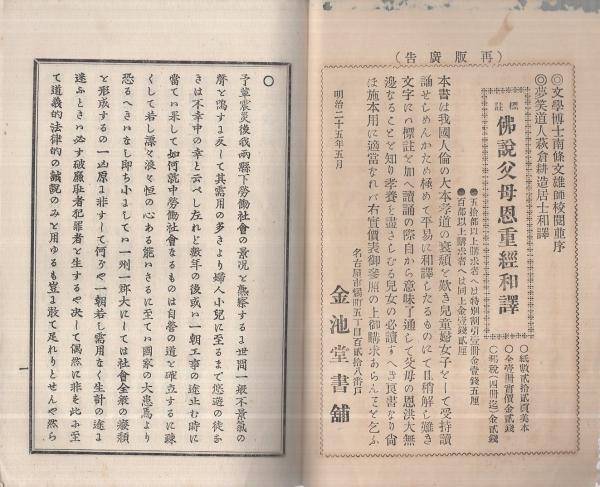 (再版廣告)
◎文學博士南條文雄師校閲並序
◎夢笑道人萩倉耕造居士和譯
標註
佛說父母恩重經和譯
○紙數貳拾貳頁美本
○全壹冊實價金貳錢
○郵稅(四冊迄)金貳錢
●五拾部以上購求者へは特別割引壹冊金壹錢五厘
●百部以上購求者へは同上金壹錢貳厘
本書は我國人倫の大本孝道の衰頽を歎き兒童婦女子をして受持讀
誦せしめんかため極めて平易に和譯したるものにて且稍解し難き
文字にハ標註を加へ讀誦の際自から意味了通して父母の恩洪大無
邊なることを知り孝養を盡さしむる兒女の必讀すへき良書なり尙
ほ施本用に適當なれバ右實價表御參照の上御購求あらんことを乞ふ
明治二十五年五月
名古屋市橘町五丁目百貳拾八番戶
金池堂書舖
○
予輩震災後我兩縣下勞働社會の景況を熟察するに世間一般不景氣の
聲を鳴すに反して其需用の多きより婦人小兒に至るまで悠遊の徒なき
きは不幸中の幸と云べし左れど數年の後或ハ一朝工事の途止む時に
當てハ果して如何就中勞働社會なるものは自營の道を確立するに疎
くして若し漂々浪々恒の心ある能ハさるに至てハ國家の大患焉より
恐るへきハなし即ち小にしてハ一州一郡大にしては社會全般の癈頽
を形成するの一凶原に非すして何ろや一朝若し需用なく生計の途に
迷ふときハ必す破廉恥者犯罪者を生するや決して偶然に非を此ふ至
て道義的法律的の誡說のみを用ゆるも豈ま敢て足れりとせんや然ら
一